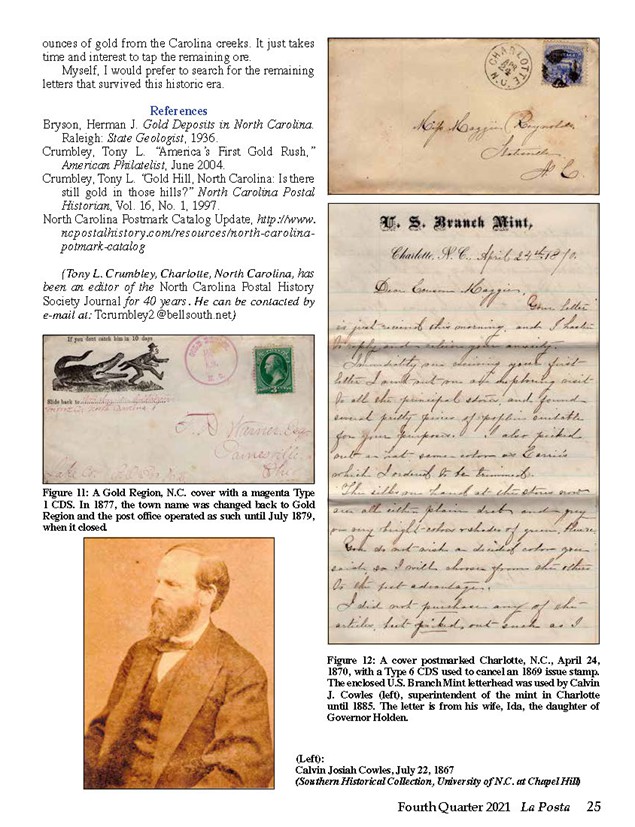 ounces of gold from the Carolina creeks. It just takes
time and interest to tap the remaining ore.
Myself, I would prefer to search for the remaining
letters that survived this historic era.
References
Bryson, Herman J. Gold Deposits in North Carolina.
Raleigh: State Geologist, 1936.
Crumbley, Tony L. “America’s First Gold Rush,”
American Philatelist, June 2004.
Crumbley, Tony L. “Gold Hill, North Carolina: Is there
still gold in those hills?” North Carolina Postal
Historian, Vol. 16, No. 1, 1997.
North Carolina Postmark Catalog Update, http://www.
ncpostalhistory.com/resources/north-carolina-
potmark-catalog
(Tony L. Crumbley, Charlotte, North Carolina, has
been an editor of the North Carolina Postal History
Society Journal for 40 years. He can be contacted by
e-mail at: Tcrumbley2@bellsouth.net)
If you dont catch him in 10 days
Slide back to
Painesville
Ohio
Figure 11: A Gold Region, N.C. cover with a magenta Type
1 CDS. In 1877, the town name was changed back to Gold
Region and the post office operated as such until July 1879,
when it closed.
CHARLOTTE N.C.
APR
24
Miss Maggie Reynolds
Statesville
N C.
U. S. Branch Mint,
Charlotte, N. C., April 24th 1870.
Dear Cousin Maggie,
Your letter
is just received this morning, and I hasten
to reply and relieve your anxiety.
Immediately on receiving your first
letter I went out on an exploring visit
to all the principal stores, and found
several pretty pieces of poplin suitable
for your purpose. I also picked
out a hat same color as Carrie's
which I ordered to be trimmed.
The silks on hand at the stores now
are all either plain dark and grey
or very bright colors & shades of green. 
You do not wish a decided color you
said, so I will choose from the others
to the best advantage.
I did not purchase any of the
articles, but picked out such as I
Figure 12: A cover postmarked Charlotte, N.C., April 24,
1870, with a Type 6 CDS used to cancel an 1869 issue stamp.
The enclosed U.S. Branch Mint letterhead was used by Calvin
J. Cowles (left), superintendent of the mint in Charlotte
until 1885. The letter is from his wife, Ida, the daughter of
Governor Holden.
(Left):
Calvin Josiah Cowles, July 22, 1867
(Southern Historical Collection, University of N.C. at Chapel Hill)
Fourth Quarter 2021 La Posta 25